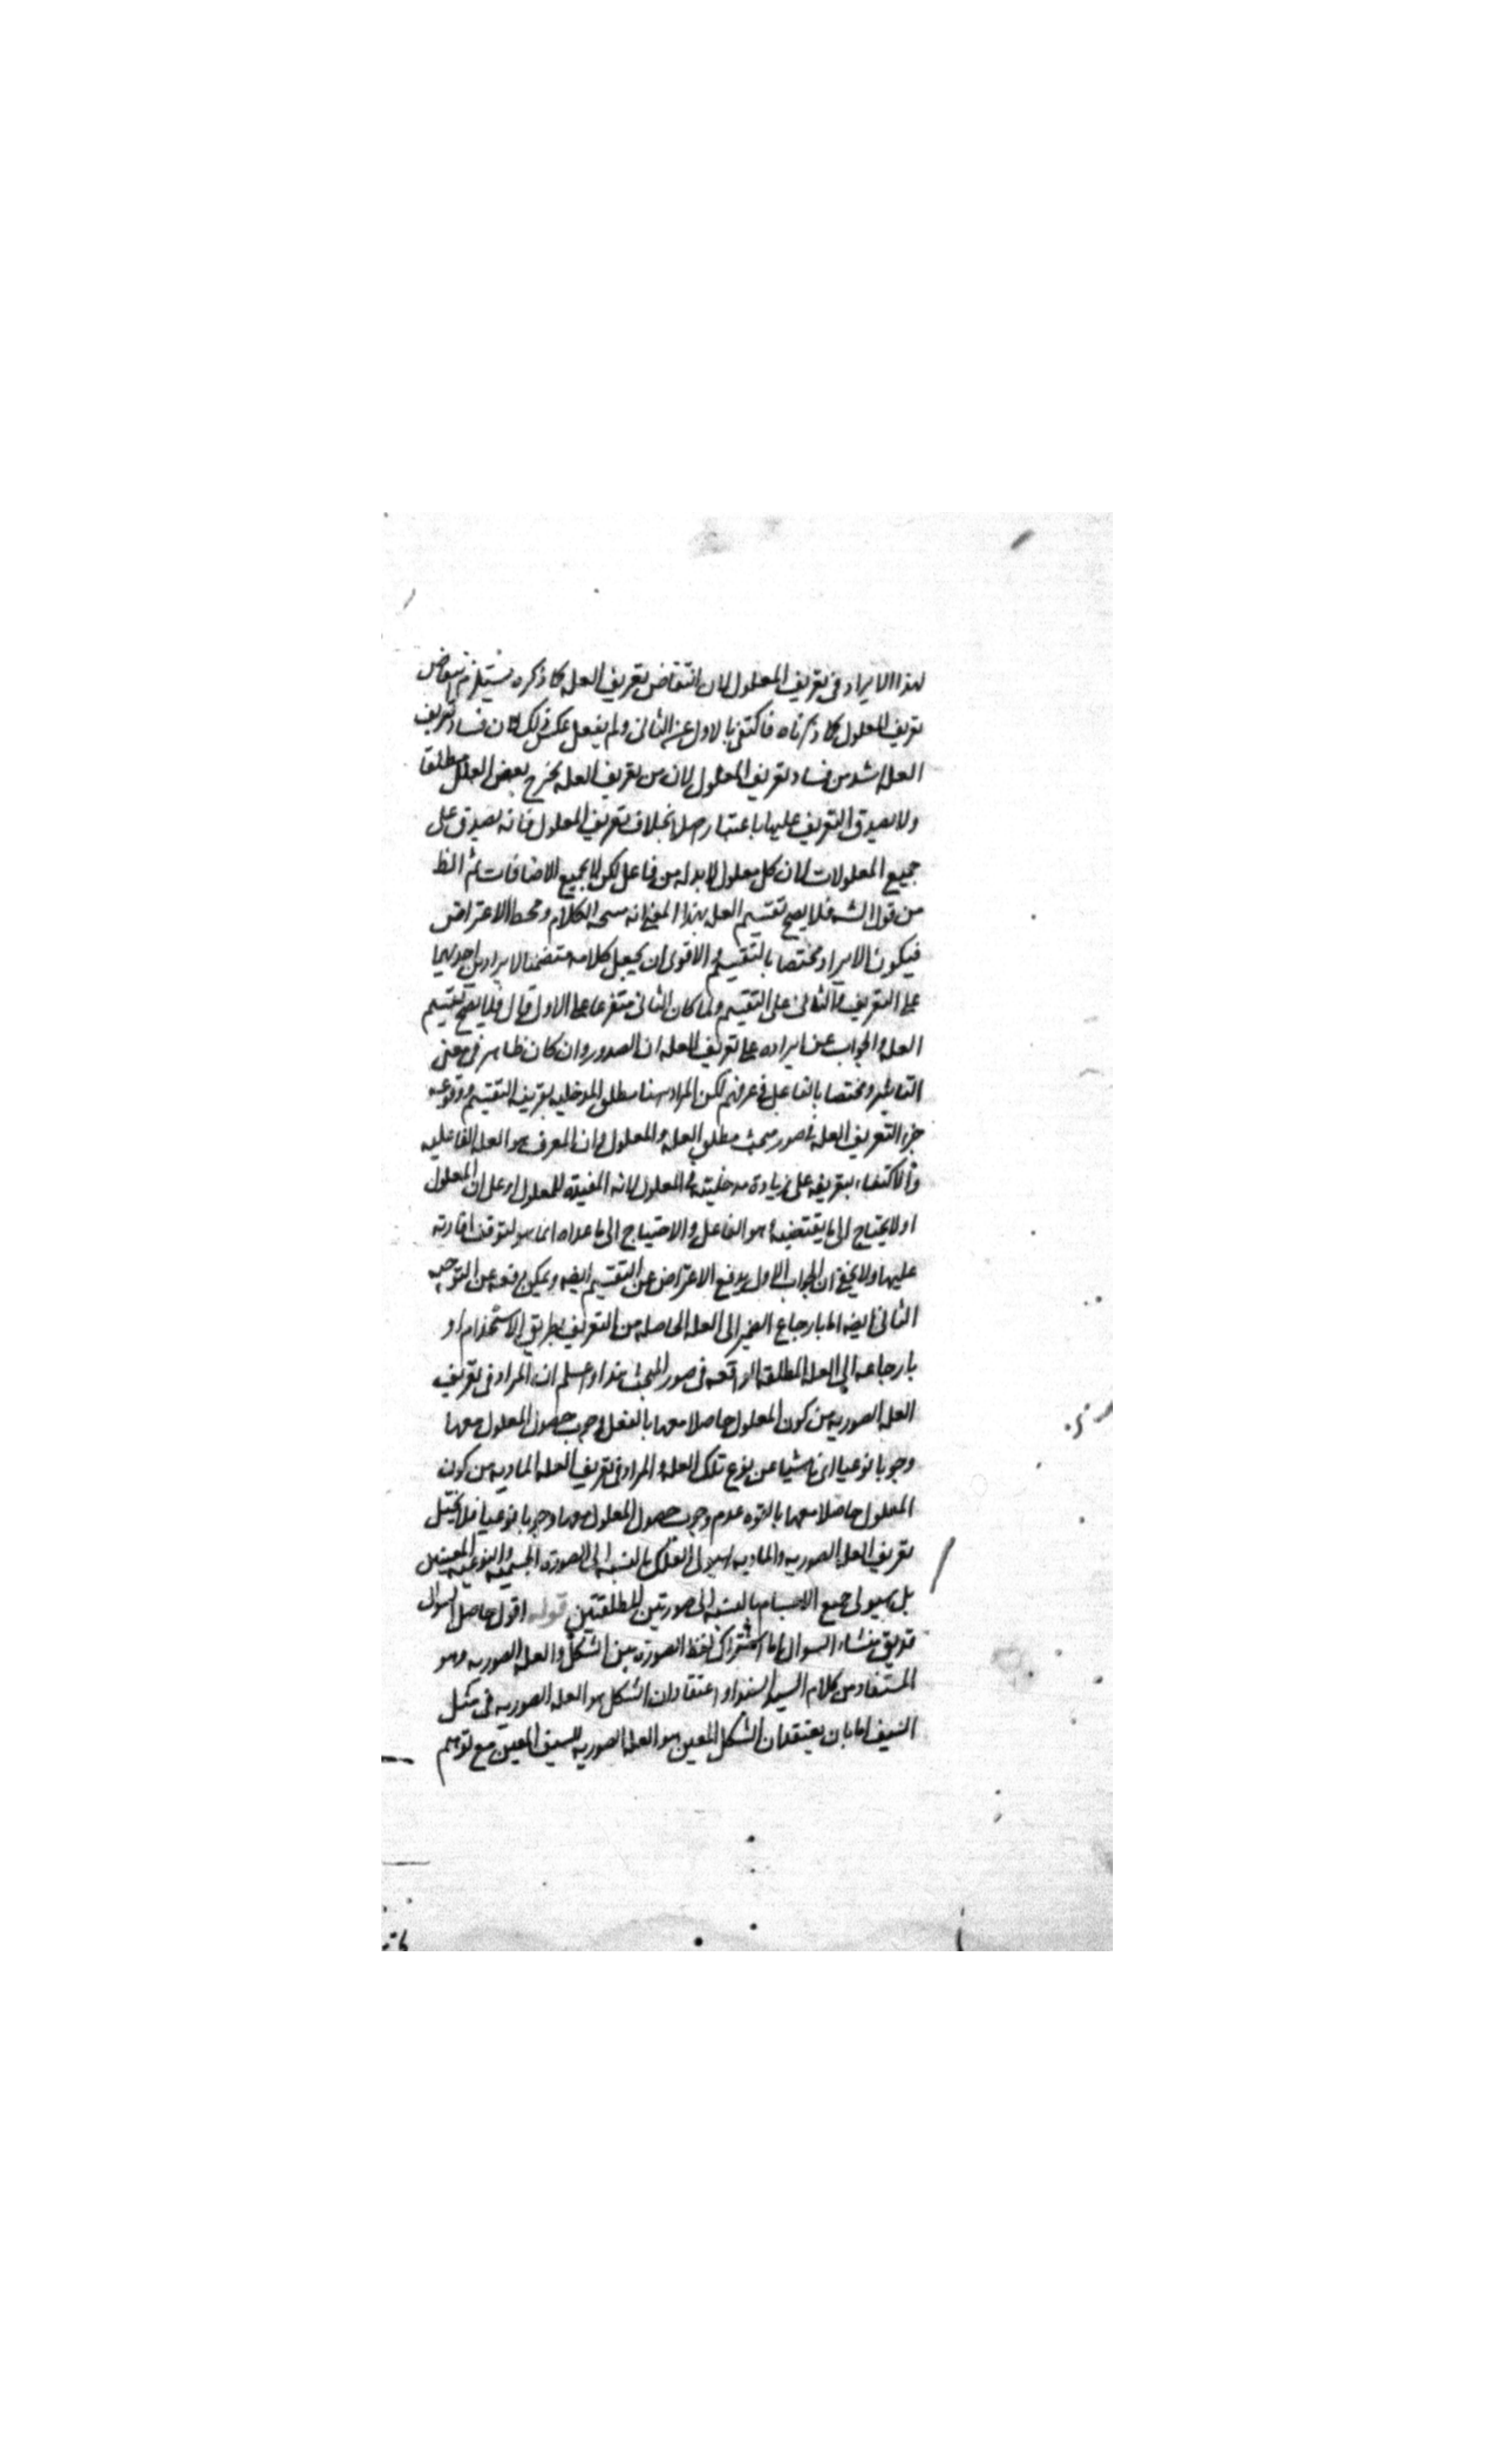 لهذا الايراد في تعريف المعلول لان انتقاض تعريف العله كما ذكره يستلزم انتقاض
تعريف المعلول كما ذكرناه فاكتفى بالاول عن الثانى ولم يفعل عكس ذلك لان فساد تعريف
العله اشد من فساد تعريف المعلول لان من تعريف العله يخرج بعض العلل مطلقا
ولا يصدق التعريف عليها باعتبار اصلا بخلاف تعريف المعلول فانه يصدق على
جميع المعلولات لان كل معلول لا بد له من فاعل لكن لا بجميع الاضافات ثم الظ
من قول الشه فلا يصح تقسيم العله بهذا المعنى انه الكلام ومحط الاعتراض
فيكون الايراد مختصا بالتقسيم والاقوى ان يجعل كلامه متضمنا لايرادين احدهما
على التعريف والثانى على التقسيم ولما كان الثانى متفرعا على الاول قال فلا يصح تقسيم
العله والجواب عن ايراده على تعريف العله ان الصدور وان كان ظاهر في معنى
التاثير ومختصا بالفاعل في عرفهم لكن المراد هنا مطلق المدخليه بقرينه التقسيم ووقوعه
جزء التعريف العله في صور مبحث مطلق العله والمعلول او ان المعرف هو العله الفاعليه
والاكتفاء بتعريفه على زيادة مدخليته في المعلول لانه المفيدة للمعلول او على ان المعلول
اولا يحتاج الى ما يقتضيه وهو الفاعل والاحتياج الى ما عداه انما هو لتوقف افادته
عليها ولا يخفى ان الجواب الاول يدفع الاعتراض عن التقسيم ايضه ويمكن دفعه عن التوجيه
الثانى ايضه اما بارجاع الضمير الى العله الحاصله من التعريف بطريق الاستخدام او
بارجاعه الى العله المطلقه الواقعه في صور المبحث هذا واعلم ان المراد في تعريف
العله الصوريه من كون المعلول حاصلا معها بالفعل وجوب حصول المعلول معها
وجوبا نوعيا اى ناشيا عن نوع تلك العله والمراد في تعريف العله الماديه من كون
المعلول حاصلا معها بالقوه عدم وجوب حصول المعلول معها وجوبا نوعيا فلا يختل
تعريف العله الصوريه والماديه بهيولى الفلك بالنسبه الى الصورة الجسميه والنوعيه المعينين
بل بهيولى جميع الاجسام بالنسبه الى صورتين المطلقتين قوله اقول حاصل السوال
قد يق منشاء السوال اما اشتراك لفظ الصوره بين الشكل والعله الصوريه وهو
المستفاد من كلام السيد السند او اعتقاد ان الشكل هو العله الصوريه في مثل
السيف اما بان يعتقد ان الشكل المعين هو العله الصوريه للسيف المعين مع توهم